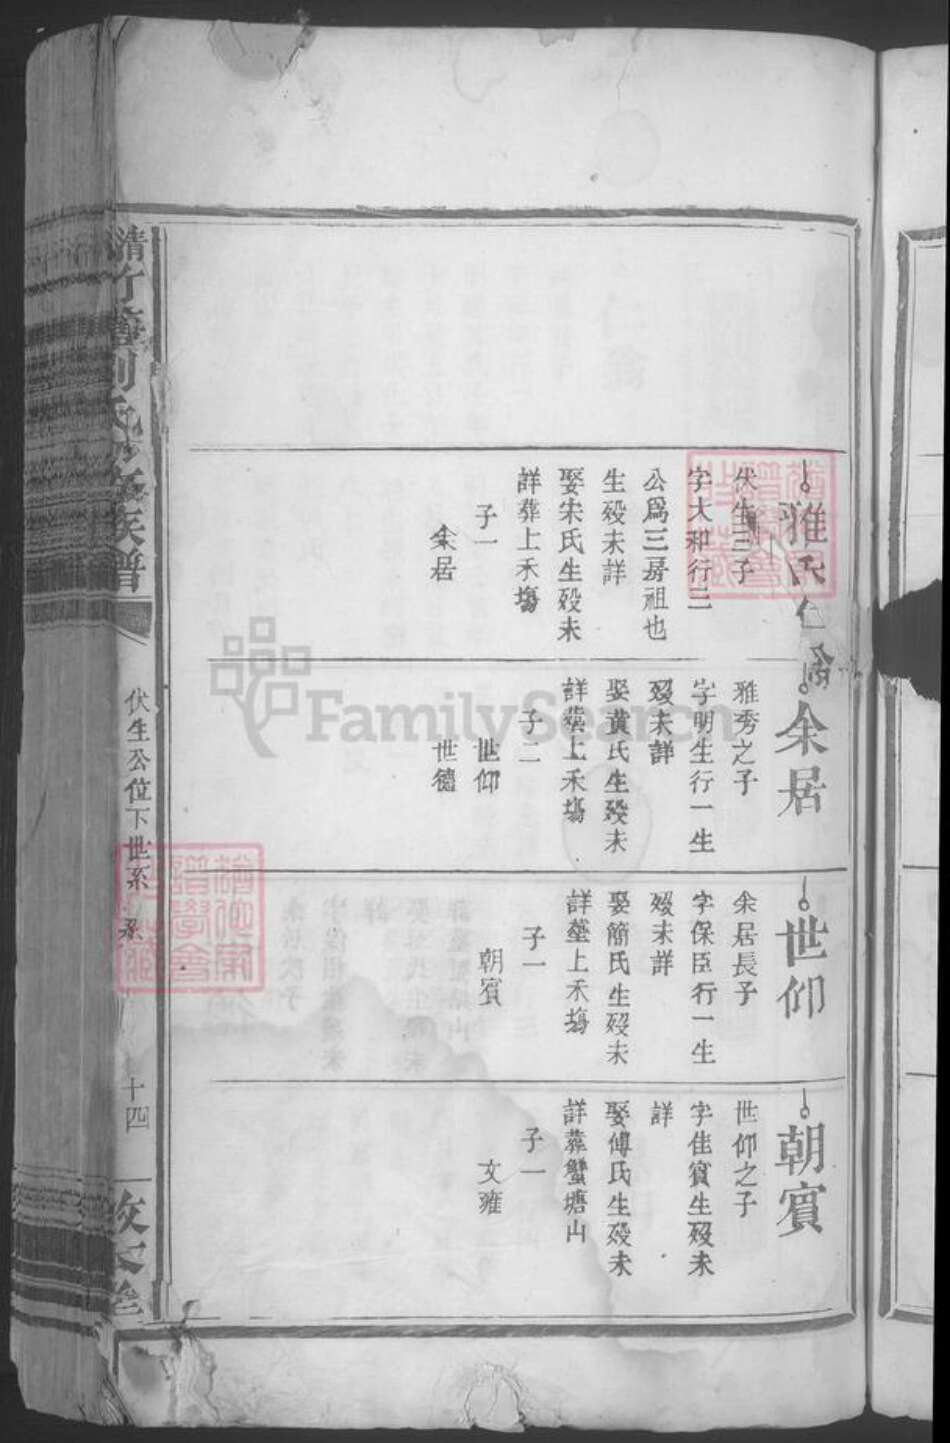 雅
伏生三子
字大和行三
公為三房祖也
生歿未詳
娶宋氏生歿未
詳葬上禾塲
子一
余居
余居
雅秀之子
字明生行一生
歿未詳
娶黃氏生歿未
詳葬上禾塲
子二
世仰
世德
世仰
余居長子
字保臣行一生
歿未詳
娶簡氏生歿未
詳塟上禾塲
子一
朝賓
朝賓
世仰之子
字佳賓生歿未
詳
娶傅氏生歿未
詳葬蟹塘山
子一
文雍
族譜
伏生公位下世系
十四
FamilySearch